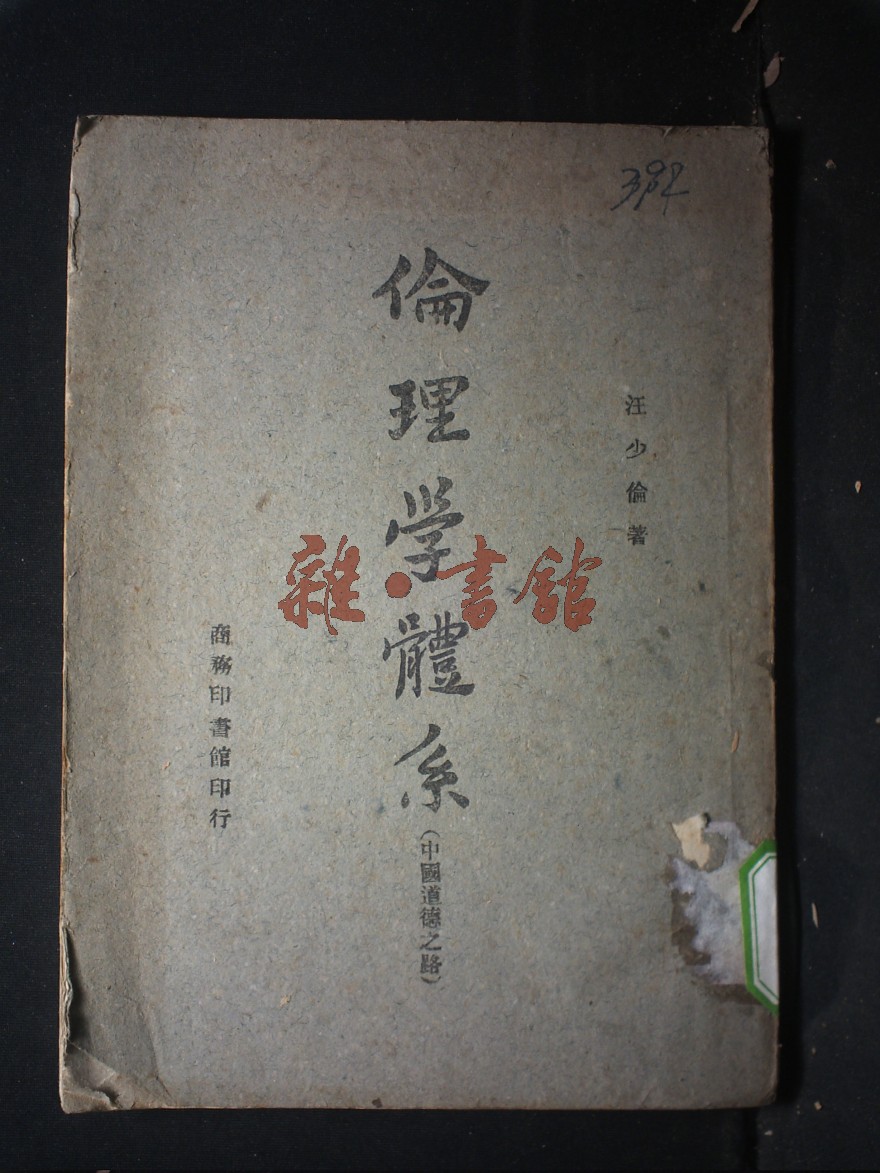 392
汪少倫著
倫理學體系
(中國道德之路)
商務印書館印行
雜·書館